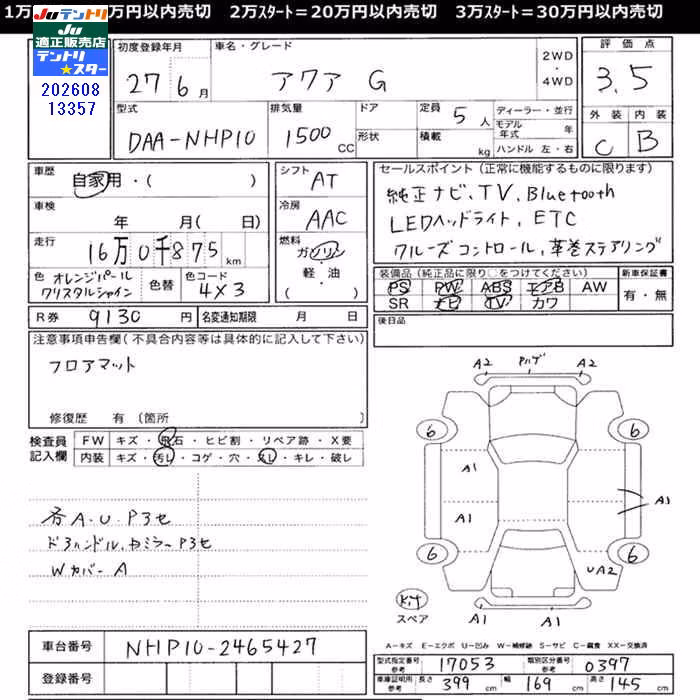 1万 万円以内売切 2万スタート=20万円以内売切 3万スタート=30万円以内売切
JUテントリ
JU適正販売店
テントリ
★スター
202608
13357
初度登録年月
27 6月
車名・グレード
アクア G
2WD
・
4WD
評価点
3.5
外装 内装
C B
型式
DAA-NHP10
排気量
1500 CC
ドア
形状
定員 5 人
積載 kg
ディーラー・並行
モデル年式 年
ハンドル 左・右
車歴
自家用・( )
車検
年 月( 日)
走行
16万0千875 km
色 オレンジパール
クリスタルシャイン
色替
色コード
4X3
シフト AT
冷房 AAC
燃料
ガソリン
・
軽・油
( )
セールスポイント(正常に機能するものに限ります)
純正ナビ、TV、Bluetooth
LEDヘッドライト、ETC
クルーズコントロール、革巻ステアリング
装備品(純正品に限り○をつけてください)
PS PW ABS エアB AW
SR ナビ TV カワ
新車保証書
有・無
R券 9130 円
名変通知期限 月 日
後日品
注意事項申告欄(不具合内容等は具体的に記入して下さい)
フロアマット
修復歴 有(箇所 )
検査員
記入欄
FW キズ・飛石・ヒビ割・リペア跡・X要
内装 キズ・汚レ・コゲ・穴・スレ・キレ・破レ
各A.U.P3セ
ドアハンドル、ドミラーP3セ
Wカバー A
A2 A2
6 6
A1 A1
A1
6 6
UA2
キット
スペア
A1 A1
A-キズ E-エクボ U-凹み W-補修跡 S-サビ C-腐食 XX-交換済
車台番号 NHP10-2465427
登録番号
型式指定番号
参考
17053
類別区分番号
参考
0397
車庫証明用
参考
長さ 399 cm 幅 169 cm 高さ 145 cm